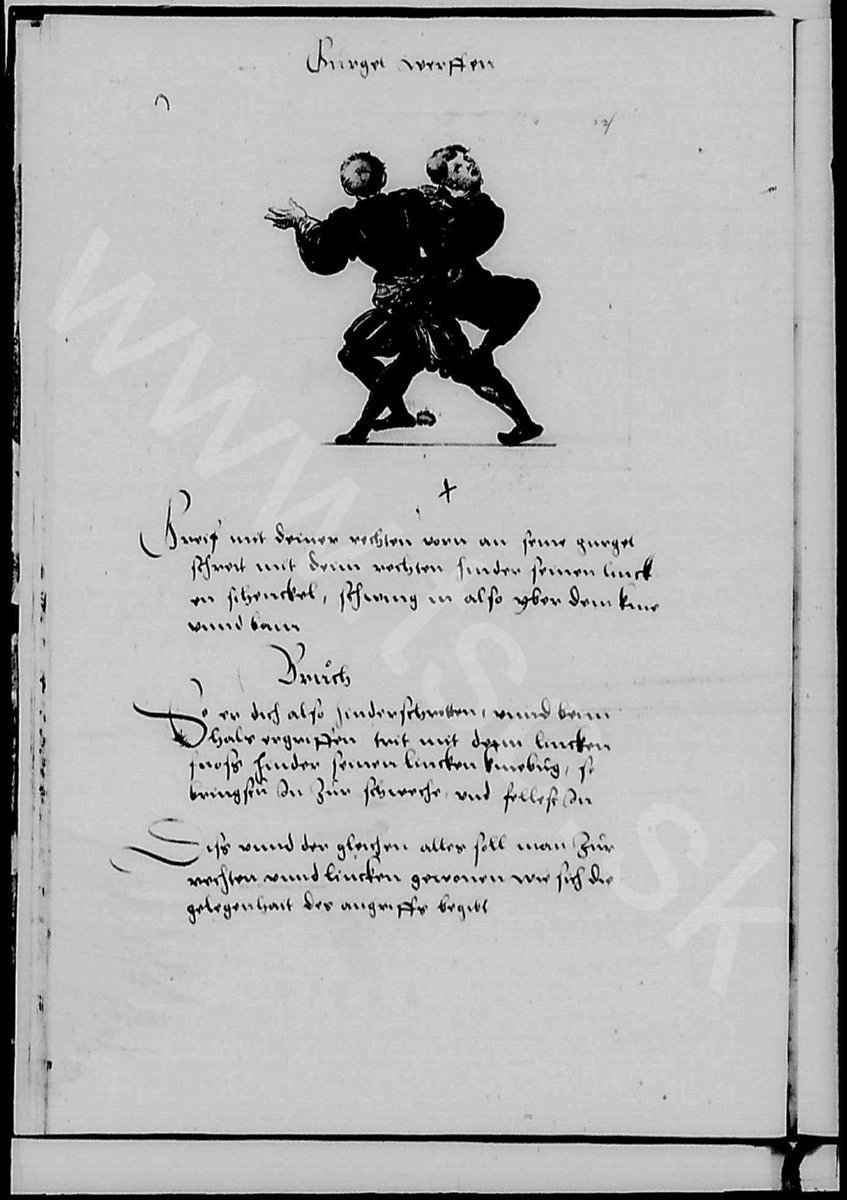 Gurgel werffen
Greif mit deiner rechten vorn an seine gurgel
schreit mit deim rechten hinder seinen linck
en schenckel, schwing in also yber dein knie
vnnd bain
Bruch
So er dich also hinderschritten, vnnd beim
hals ergriffen trit mit deim lincken
fuoss hinder seinen lincken kniebug, so
bringstu In Zur schweche, vnd fellest In
Diss vnnd der gleichen alles soll man Zur
rechten vnnd lincken gewonen wie sich die
gelegenhait des angriffs begibt